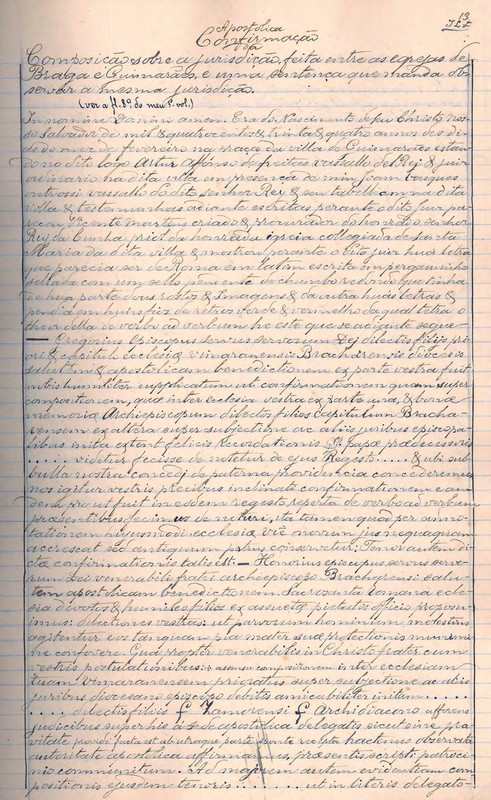 Apostolica
Confirmação
da
Composição sobre a jurisdição, feita entre as egrejas de
Braga e Guimarães, e uma sentença que manda ob-
servar a mesma jurisdição.
(ver a fl. 8º do meu 1º vol.)
In nomine Domini amen. Era do Nascimento de Jeu Christo nos-
so Salvador de mil & quatrocentos & trinta & quatro annos dez di-
as do mez de fevereiro na praça da villa de Guimarães estan-
do na dita logo Artur Afonso de freitas vassallo del Rej & juiz
ordinario na dita villa em presença de mim Joam
outrossi vassallo do dito senhor Rey & seu taballiam na dita
villa & testemunhas adiante escritas perante o dito juiz pa-
receu Vicente Martins criado & procurador do honrado senhor
Ruj da Cunha priol da honrada igreia collegiada de Santa
Maria da dita villa & mostrou perante o dito juiz hua letra
que parecia ser de Roma em latim escrita em pergaminho
sellada com um sello pendente de chumbo redondo que tinha
e hua parte dous rostos & Imagens & da outra huas letras &
pendia em huns fios de retros verde & vermelho da qual letra o
theor della de verbo ad verbum he este que se adiante segue
— Gregorius Episcopus servus servorum Dej dilectis filiis pri-
orj & capitulo ecclesiæ Vimaranensis Bracharensis diocesis
salutem & apostolicam benedictionem ex parte vestra fuit
nobis humiliter supplicatum ut confirmationem quam super
compositionem, quæ inter ecclesia vestra ex parte una, & bonæ
memoriæ Archiepiscopum dilectos filios capitulum Bracha-
rensem ex altera super subjectione ac aliis juribus episcopa-
libus inita extat felicis recordationis papæ prædecessoris
..... videtur fecisse de notetur de ejus Regesto..... & ubi sub
bulla nostra concedj de paterna providencia concederemus
nos igitur vestris precibus inclinati confirmationem eam-
dem prout fuit in eodem regesto reperta de verbo ad verbum
præsentibus fecimus de noturi, ita tamen quod per anno-
tationem hujusmodi ecclesiæ viæ novum jus nequaquam
accrescat sed antiquum potius conservetur: Tenor autem di-
ctæ confirmationis talis est: — Honorius episcopus servus servo-
rum Dei venerabili fratri archiepiscopo Bracharensi salu-
tem apostolicam benedictionem. Sacrosanta romana eccle-
sia devotos & humiles filios ex assueta pietatis officio propo-
imus: dilectiones vestras: ut pravorum hominum molestiis
agitentur eos tanquam pia mater suæ protectionis munimi-
ne confovere. Qua propter venerabiles in Christo frater cum
vestris postulationibus: assensu compositionem inter ecclesiam
tuam vimaranensem prioratus super subjectione ac aliis
juribus diocesano episcopo debitis amicabiliter initam.......
..... delectis filiis f Zamorensi f Archidiacono afferens
judicibus super his à sede apostolica delegatis sicut sine pra-
vitate provide facta est ab utraque parte sponte recepta hactenus observata
autoritate apostolica affirmamus, præsentis scripti patroci-
nio communitum. Ad majorem autem evidentiam com-
positionis ejusdem tenoris........ ut in literis delegato-